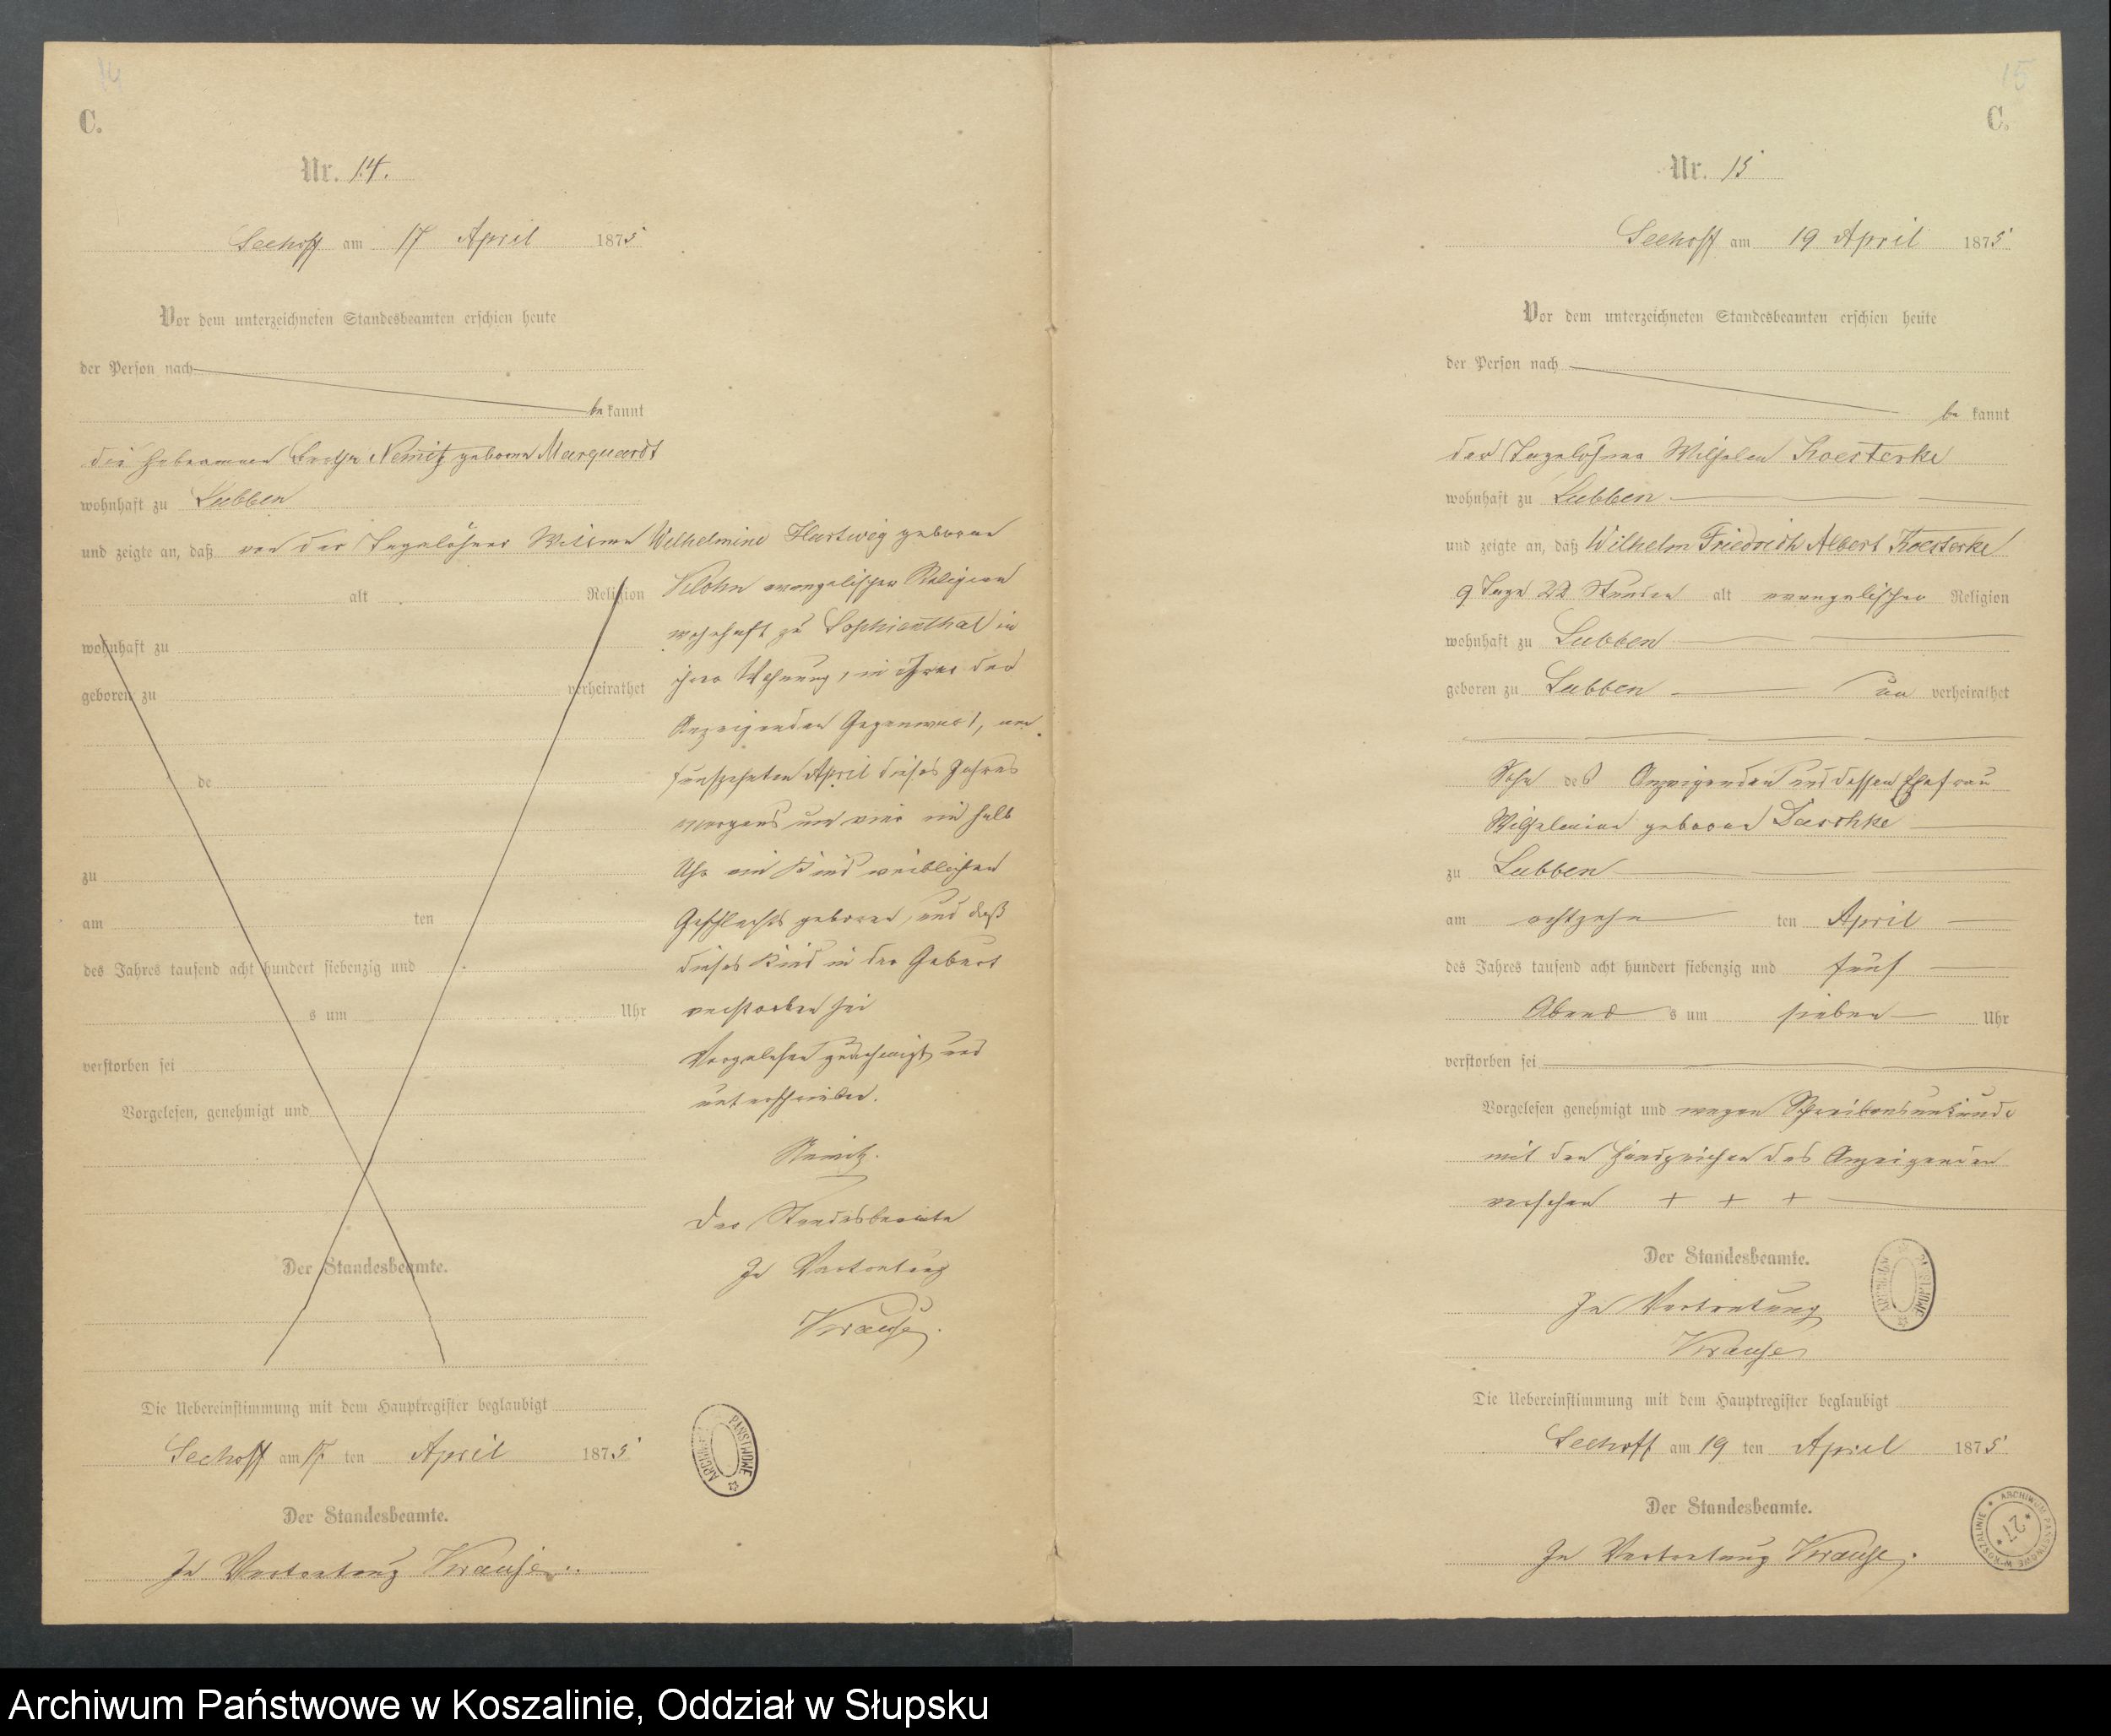 14
C.
Nr. 14.
Seehoff am 17 April 1875
Vor dem unterzeichneten Standesbeamten erschien heute
der Person nach
be kannt
die Hebeamme Nemitz geborne Marquardt
wohnhaft zu Lubben
und zeigte an, daß von der Tagelöhner Wittwe Wilhelmine Hartwig geborne
alt Religion
Klohn evangelischer Religion
wohnhaft zu Sophienthal in
wohnhaft zu
ihrer Wohnung, in ihrer der
geboren zu verheirathet
Anzeigenden Gegenwart, am
fünfzehnten April dieses Jahres
de
Morgens um vier ein halb
Uhr ein Kind weiblichen
zu
Geschlechts geboren, und daß
am ten
dieses Kind in der Geburt
des Jahres tausend acht hundert siebenzig und
verstorben sei
s um Uhr
Vorgelesen genehmigt und
verstorben sei
unterschrieben.
Vorgelesen, genehmigt und
Nemitz.
Der Standesbeamte
Der Standesbeamte.
In Vertretung
Krause.
Die Uebereinstimmung mit dem Hauptregister beglaubigt
Seehoff am 17 ten April 1875
Der Standesbeamte.
In Vertretung Krause.
ARCHIWUM PAŃSTWOWE
15
C.
Nr. 15
Seehoff am 19 April 1875
Vor dem unterzeichneten Standesbeamten erschien heute
der Person nach
be kannt
der Tagelöhner Wilhelm Koesterke
wohnhaft zu Lubben
und zeigte an, daß Wilhelm Friedrich Albert Koesterke
9 Tage 22 Stunden alt evangelischer Religion
wohnhaft zu Lubben
geboren zu Lubben un verheirathet
Sohn des Anzeigenden und dessen Ehefrau
Wilhelmine geborne Daschke
zu Lubben
am achtzehn ten April
des Jahres tausend acht hundert siebenzig und fünf
Abend s um sieben Uhr
verstorben sei
Vorgelesen genehmigt und wegen Schreibensunkunde
mit den Handzeichen des Anzeigenden
versehen + + +
Der Standesbeamte.
In Vertretung
Krause
ARCHIWUM PAŃSTWOWE
Die Uebereinstimmung mit dem Hauptregister beglaubigt
Seehoff am 19 ten April 1875
Der Standesbeamte.
In Vertretung Krause.
ARCHIWUM PAŃSTWOWE W KOSZALINIE
*27*
Archiwum Państwowe w Koszalinie, Oddział w Słupsku